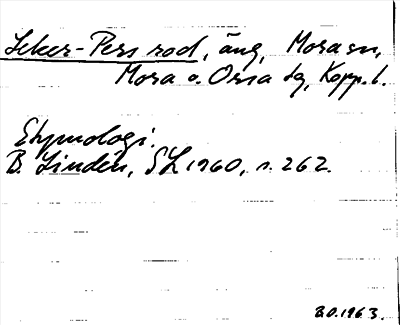 Leker-Pers rod, äng, Mora sn,
Mora o. Orsa tg, Kopp. l.
Etymologi.
B. Lindén, SL 1960, s. 262.
B.O. 1963.